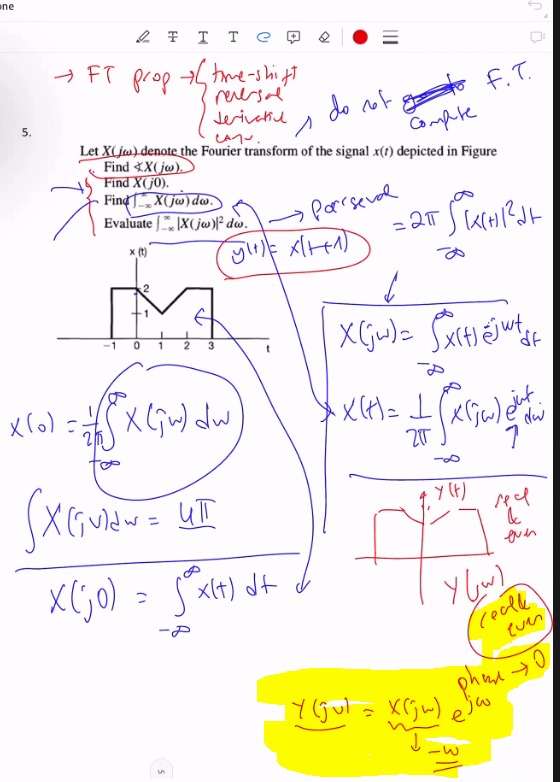 → FT prop → { time-shift
reversal
derivative
do not compute F.T.
5.
Let X(jω) denote the Fourier transform of the signal x(t) depicted in Figure
Find ∢X(jω).
Find X(j0).
Find ∫_{-∞}^{∞} X(jω) dω.
Evaluate ∫_{-∞}^{∞} |X(jω)|² dω.
→ Parseval
= 2π ∫_{-∞}^{∞} |x(t)|² dt
y(t) = x(t+1)
x (t)
2
1
-1 0 1 2 3 t
X(jω) = ∫_{-∞}^{∞} x(t) e^{-jωt} dt
x(t) = 1/2π ∫_{-∞}^{∞} X(jω) e^{jωt} dω
x(0) = 1/2π ∫_{-∞}^{∞} X(jω) dω
∫ X(jω) dω = 4π
X(j0) = ∫_{-∞}^{∞} x(t) dt
y(t)
real
&
even
Y(jω)
real &
even
phase → 0
Y(jω) = X(jω) e^{jω}
↓
-ω
5